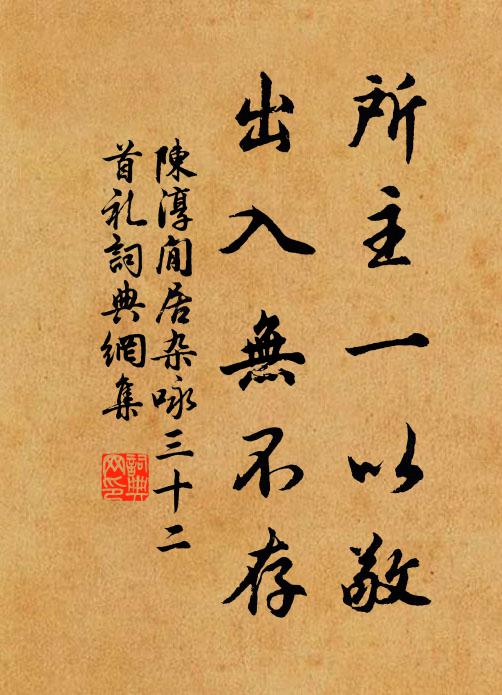 所主一以敬
出入無不存
陳淳閒居杂咏三十二
首礼詞典網集
詞典
网印